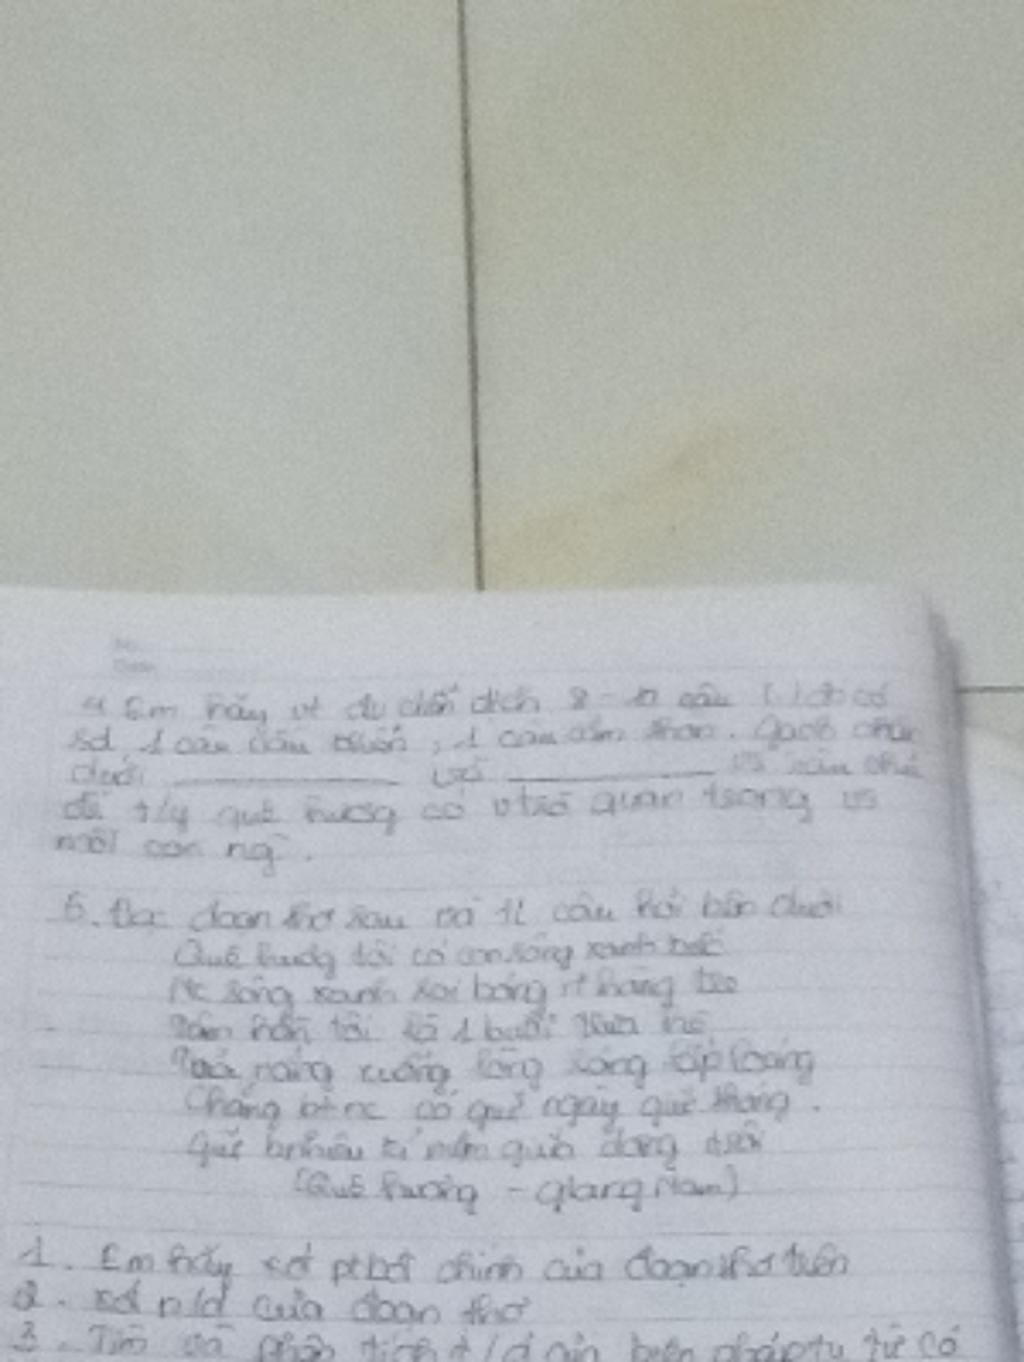 4 Em hãy vt đv diễn dịch 8-10 câu
sd 1 câu, 1 câu cảm thán. Gạch chân
dưới
đề t/y quê hương có vtrò quan trọng vs
mỗi con ng`.
5. Đọc đoạn thơ sau và tl câu hỏi bên dưới
Quê hương tôi có con sông xanh biếc
Nc sông xanh soi bóng hàng tre
Tâm hồn tôi là 1 buổi trưa hè
Toả nắng xuống lòng sông lấp loáng
Chẳng bt nc có giữ ngày giữ tháng.
Giữ bnhiêu kỉ niệm giữa dòng trôi
(Quê hương - Giang Nam)
1. Em hãy xđ ptbđ chính của đoạn thơ trên
2. Xđ n/d của đoạn thơ
3. Tìm và phân tích t/d của biện pháp tu từ có